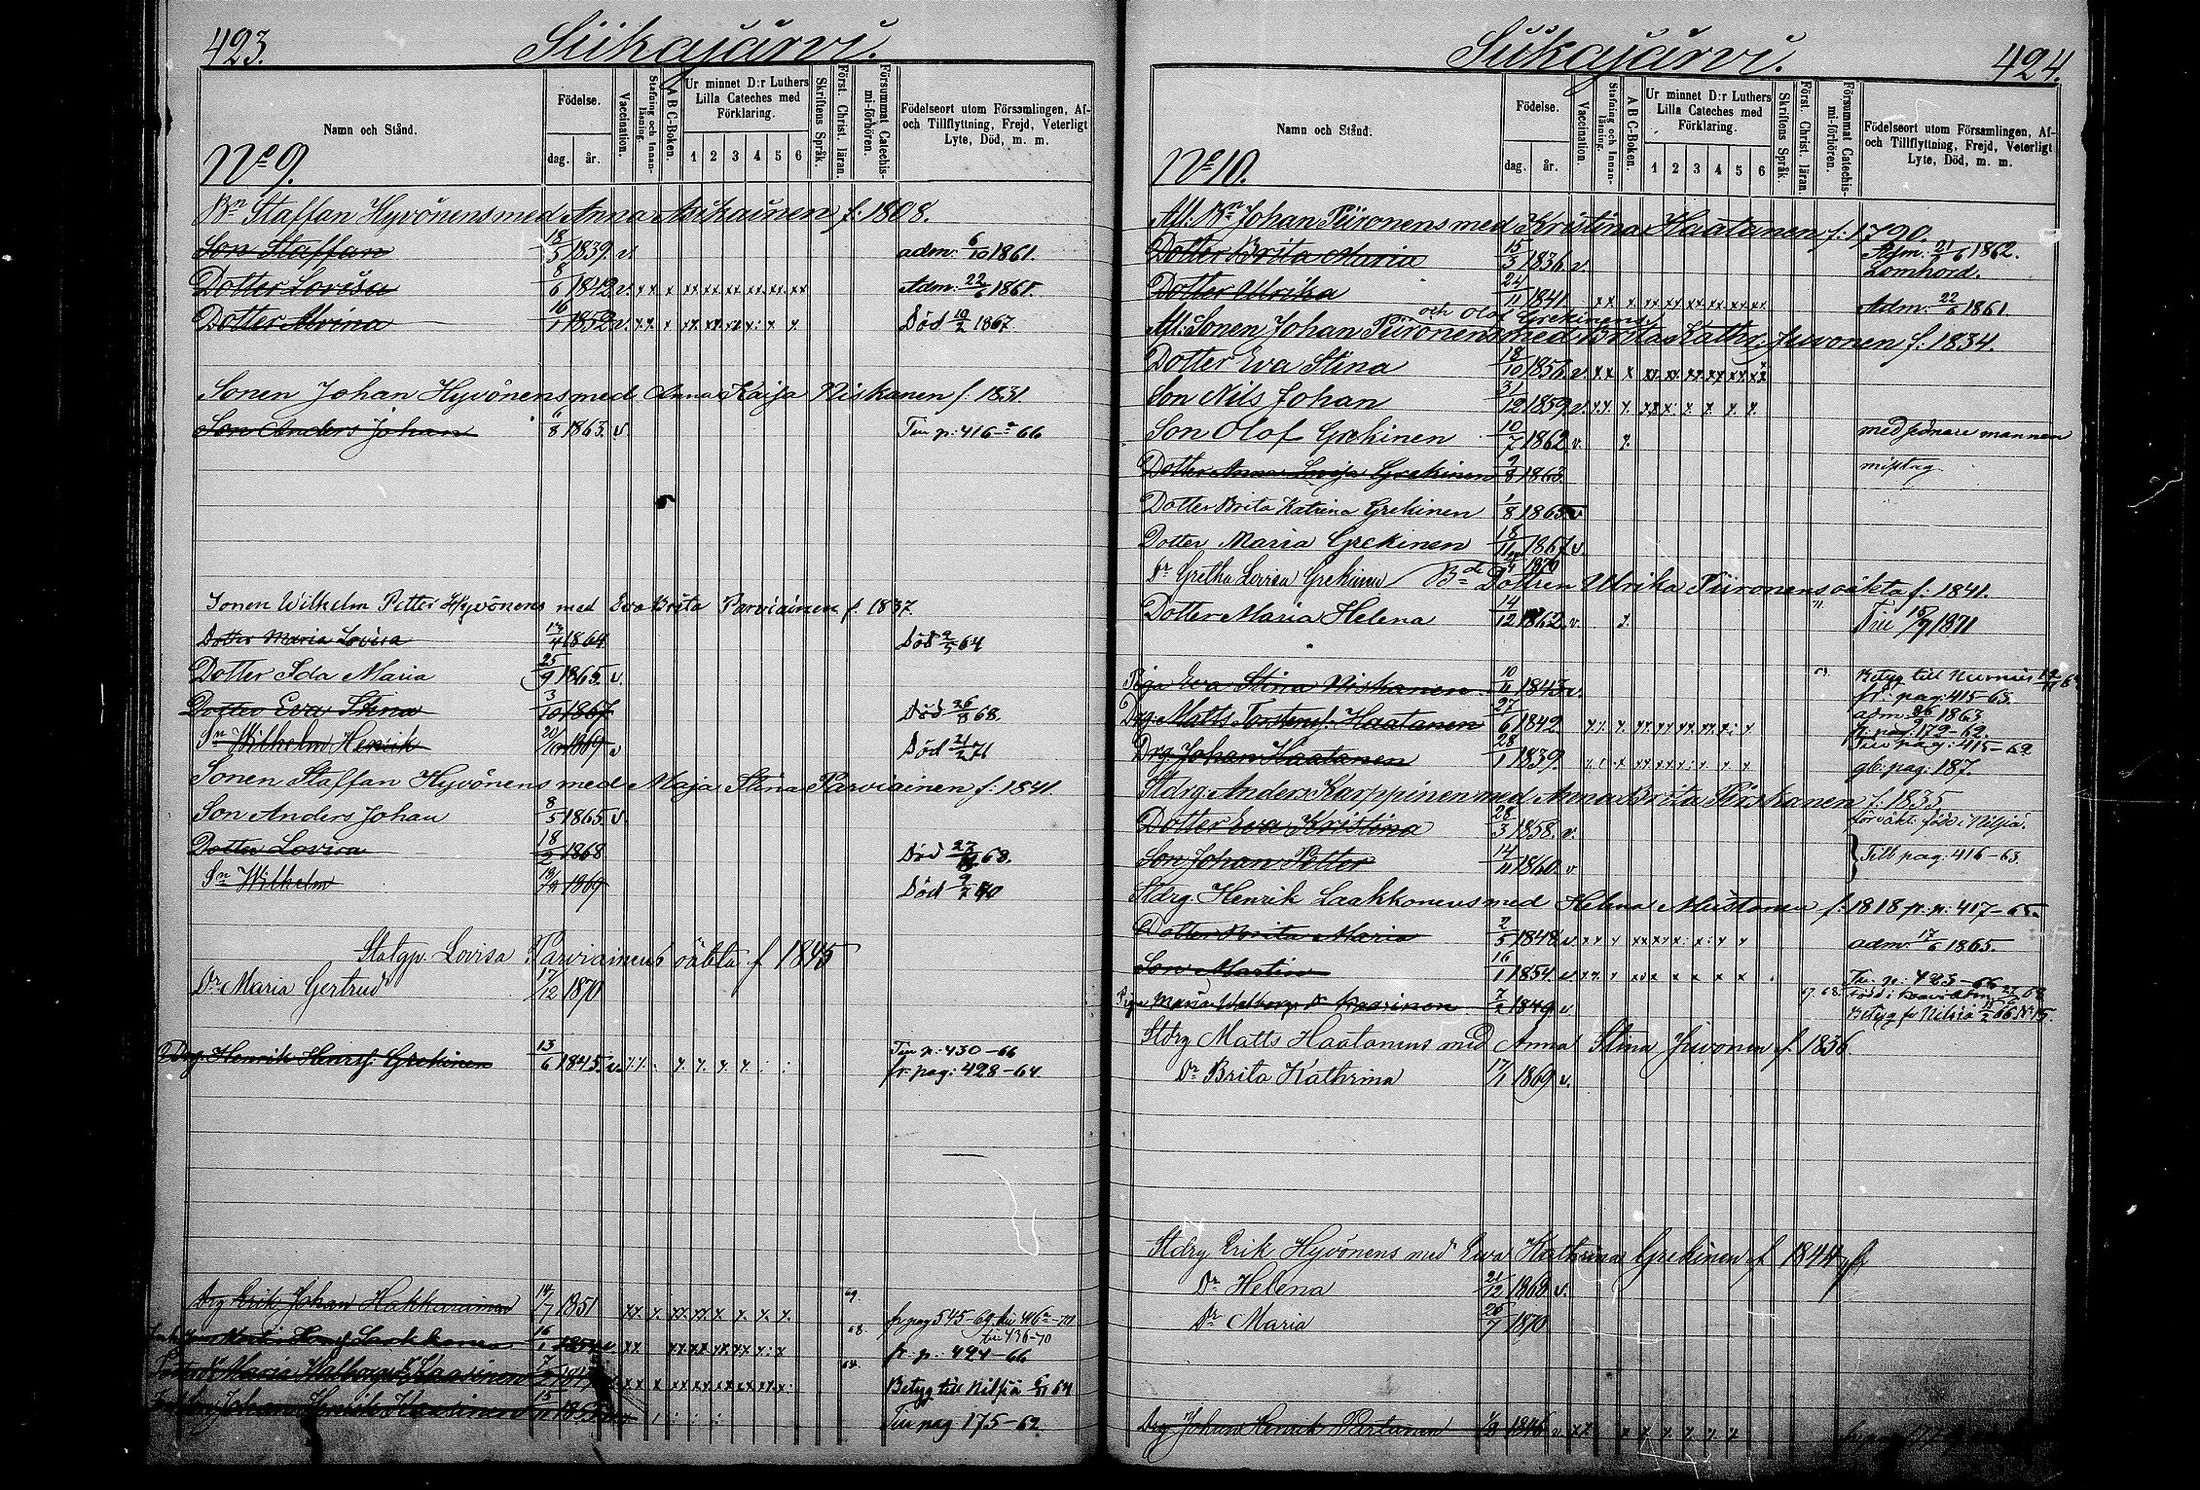 423.
Siikajärvi.
Namn och Stånd.
Födelse.
dag.
år.
Vaccination.
Stafning och Innanläsning.
A B C-Boken.
Ur minnet D:r Luthers
Lilla Cateches med
Förklaring.
1 2 3 4 5 6
Skriftens Språk.
Först. Christ. läran.
Försummat Catechismi-förhören.
Födelseort utom Församlingen, Af-
och Tillflyttning, Frejd, Veterligt
Lyte, Död, m. m.
No 9.
Bn Staffan Hyvönens med Anna Asikainen f. 1808.
Son Staffan 18/5 1839. v. adm. 6/10 1861.
Dotter Lovisa 8/6 1842. v. Adm. 22/6 1861.
Dotter Alvina 16/1 1852. v. Död 19/2 1867.
Sonen Johan Hyvönens med Anna Kaija Niskanen f. 1831.
Son Anders Johan 6/8 1863. v Till p: 416-66
Sonen Wilhelm Petter Hyvönens med Eva Brita Parviainen f. 1837.
Dotter Maria Lovisa 1864 Död 64
Dotter Ida Maria 25/9 1865. v.
Dotter Eva Stina 3/10 1867 Död 26/8 68.
Sn Wilhelm Henrik 1869 v Död 21/2 71
Sonen Staffan Hyvönens med Maja Stina Parviainen f. 1841.
Son Anders Johan 8/5 1865. v
Dotter Lovisa 18/2 1868 Död 68.
Sn Wilhelm 1869 Död 70
Lovisa Parviainens oäkta f 1845
Dr Maria Gertrud 17/12 1870
Drg. Henrik Henrsf. Grekinen 13/6 1845. v. Till p: 430-66
fr. pag: 428-64.
Drg Erik Johan Hakkarainen 14/7 1851 fr. pag 545-69
till 436-70
16/1 1854 v fr. p. 424-66
Maria Walborg Kaasinen Betyg till Nilsiä 64
Johan Henrik Kaasinen 15/11 Till pag 175-62
424.
Siikajärvi.
Namn och Stånd.
Födelse.
dag.
år.
Vaccination.
Stafning och Innanläsning.
A B C-Boken.
Ur minnet D:r Luthers
Lilla Cateches med
Förklaring.
1 2 3 4 5 6
Skriftens Språk.
Först. Christ. läran.
Försummat Catechismi-förhören.
Födelseort utom Församlingen, Af-
och Tillflyttning, Frejd, Veterligt
Lyte, Död, m. m.
No 10.
Afl. Bn Johan Piironens med Kristina Haatanen f. 1790.
Dotter Brita Maria 15/3 1836. v. Adm. 21/6 1862.
Lomhord.
Dotter Ulrika 24/11 1841. Adm. 22/6 1861.
och Olof Grekinens
Afl. Sonen Johan Piironens med Brita Kathr. Juvonen f. 1834.
Dotter Eva Stina 18/10 1856. v
Son Nils Johan 31/12 1859. v.
Son Olof Grekinen 10/7 1862. v. med sednare mannen
Dotter Anna Lovisa Grekinen 9/8 1863. misstag.
Dotter Brita Katrina Grekinen 1/8 1865 v
Dotter Maria Grekinen 18/11 1867. v.
Dr Gretha Lovisa Grekinen 1870
Bde Dottren Ulrika Piironens oäkta f. 1841.
Dotter Maria Helena 14/12 1862. v. Till 15/9 1871
Piga Eva Stina Niskanen 10/11 1843. v. Betyg till Nurmis
fr. pag: 415-63.
Drg. Matts Torstensf. Haatanen 27/6 1842. adm. 1863
fr. pag: 179-62.
Drg. Johan Haatanen 28/1 1839. Till pag: 415-62
gb. pag: 187.
Stdrg. Anders Karppinen med Anna Brita Pirskanen f. 1835.
Dotter Eva Kristina 28/3 1858. v. föräkt. född i Nilsiä.
Son Johan Petter 14/11 1860. v Till pag: 416-63.
Stdrg. Henrik Laakkonens med Helena Mustonen f. 1818 fr. p: 417-65.
Dotter Brita Maria 2/5 1848. v. adm. 17/6 1865.
Son Martin 16/1 1854. v. Till p: 423-66
Piga Maria Walborg Kaasinen 7/2 1849. v 67.68. Född i Kaavi
Betyg fr Nilsiä 66 No 15.
Stdrg Matts Haatanens med Anna Stina Juvonen f. 1836.
Dr Brita Kathrina 17/1 1869 v.
Stdrg Erik Hyvönens med Eva Kathrina Grekinen f 1844
Dr Helena 21/12 1868 v.
Dr Maria 26/7 1870
Drg Johan Henrik Partanen 1846 v